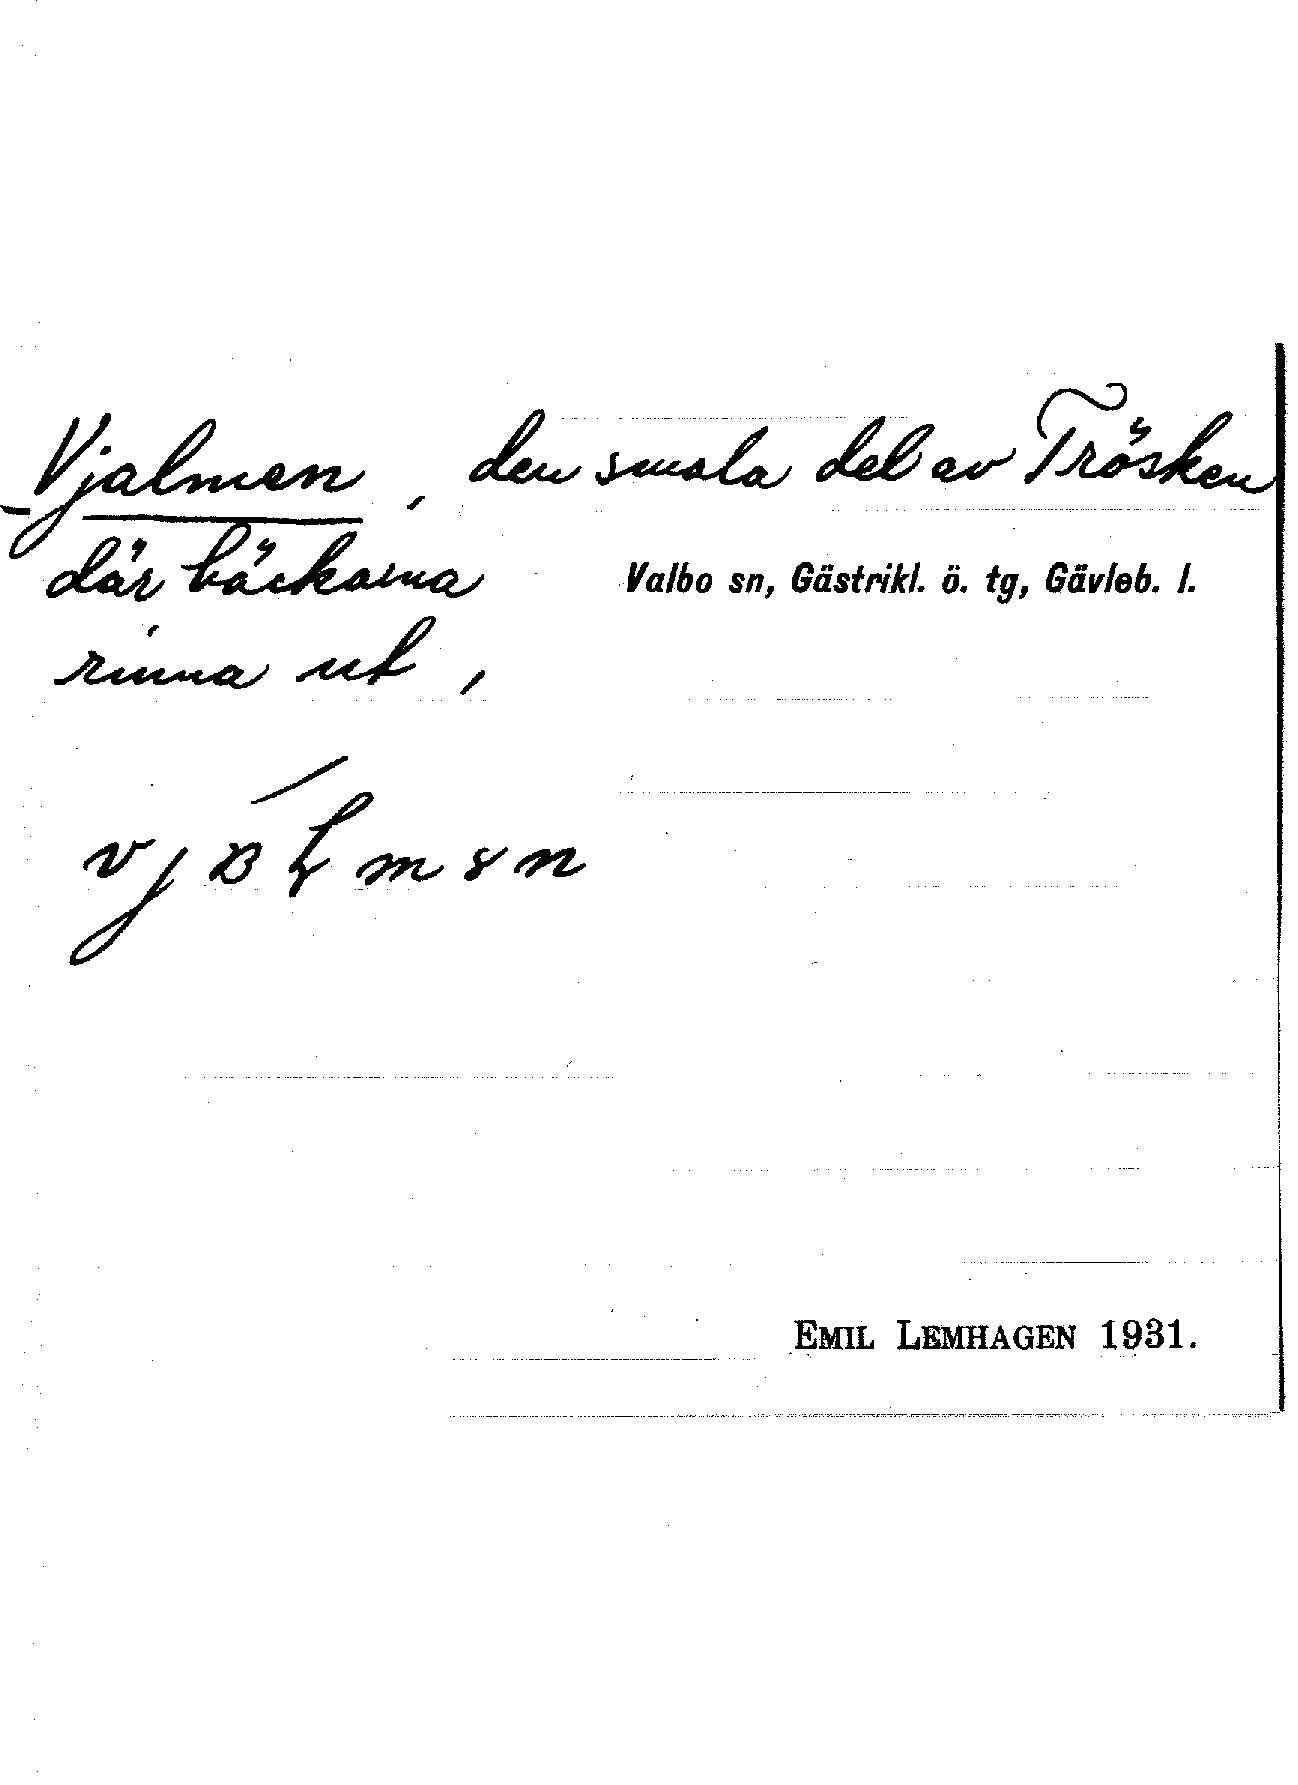 Vjalmen, den smala del av Trösken
där bäckarna
Valbo sn, Gästrikl. ö. tg, Gävleb. l.
rinna ut,
EMIL LEMHAGEN 1931.